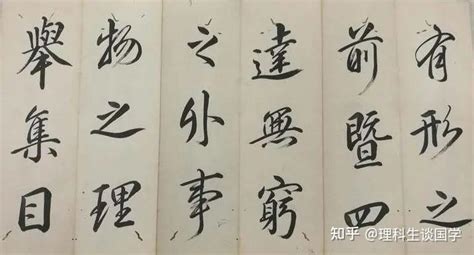 有形之
前暨四
達無窮
之外事
物之理
舉集目
知乎 @理科生谈国学